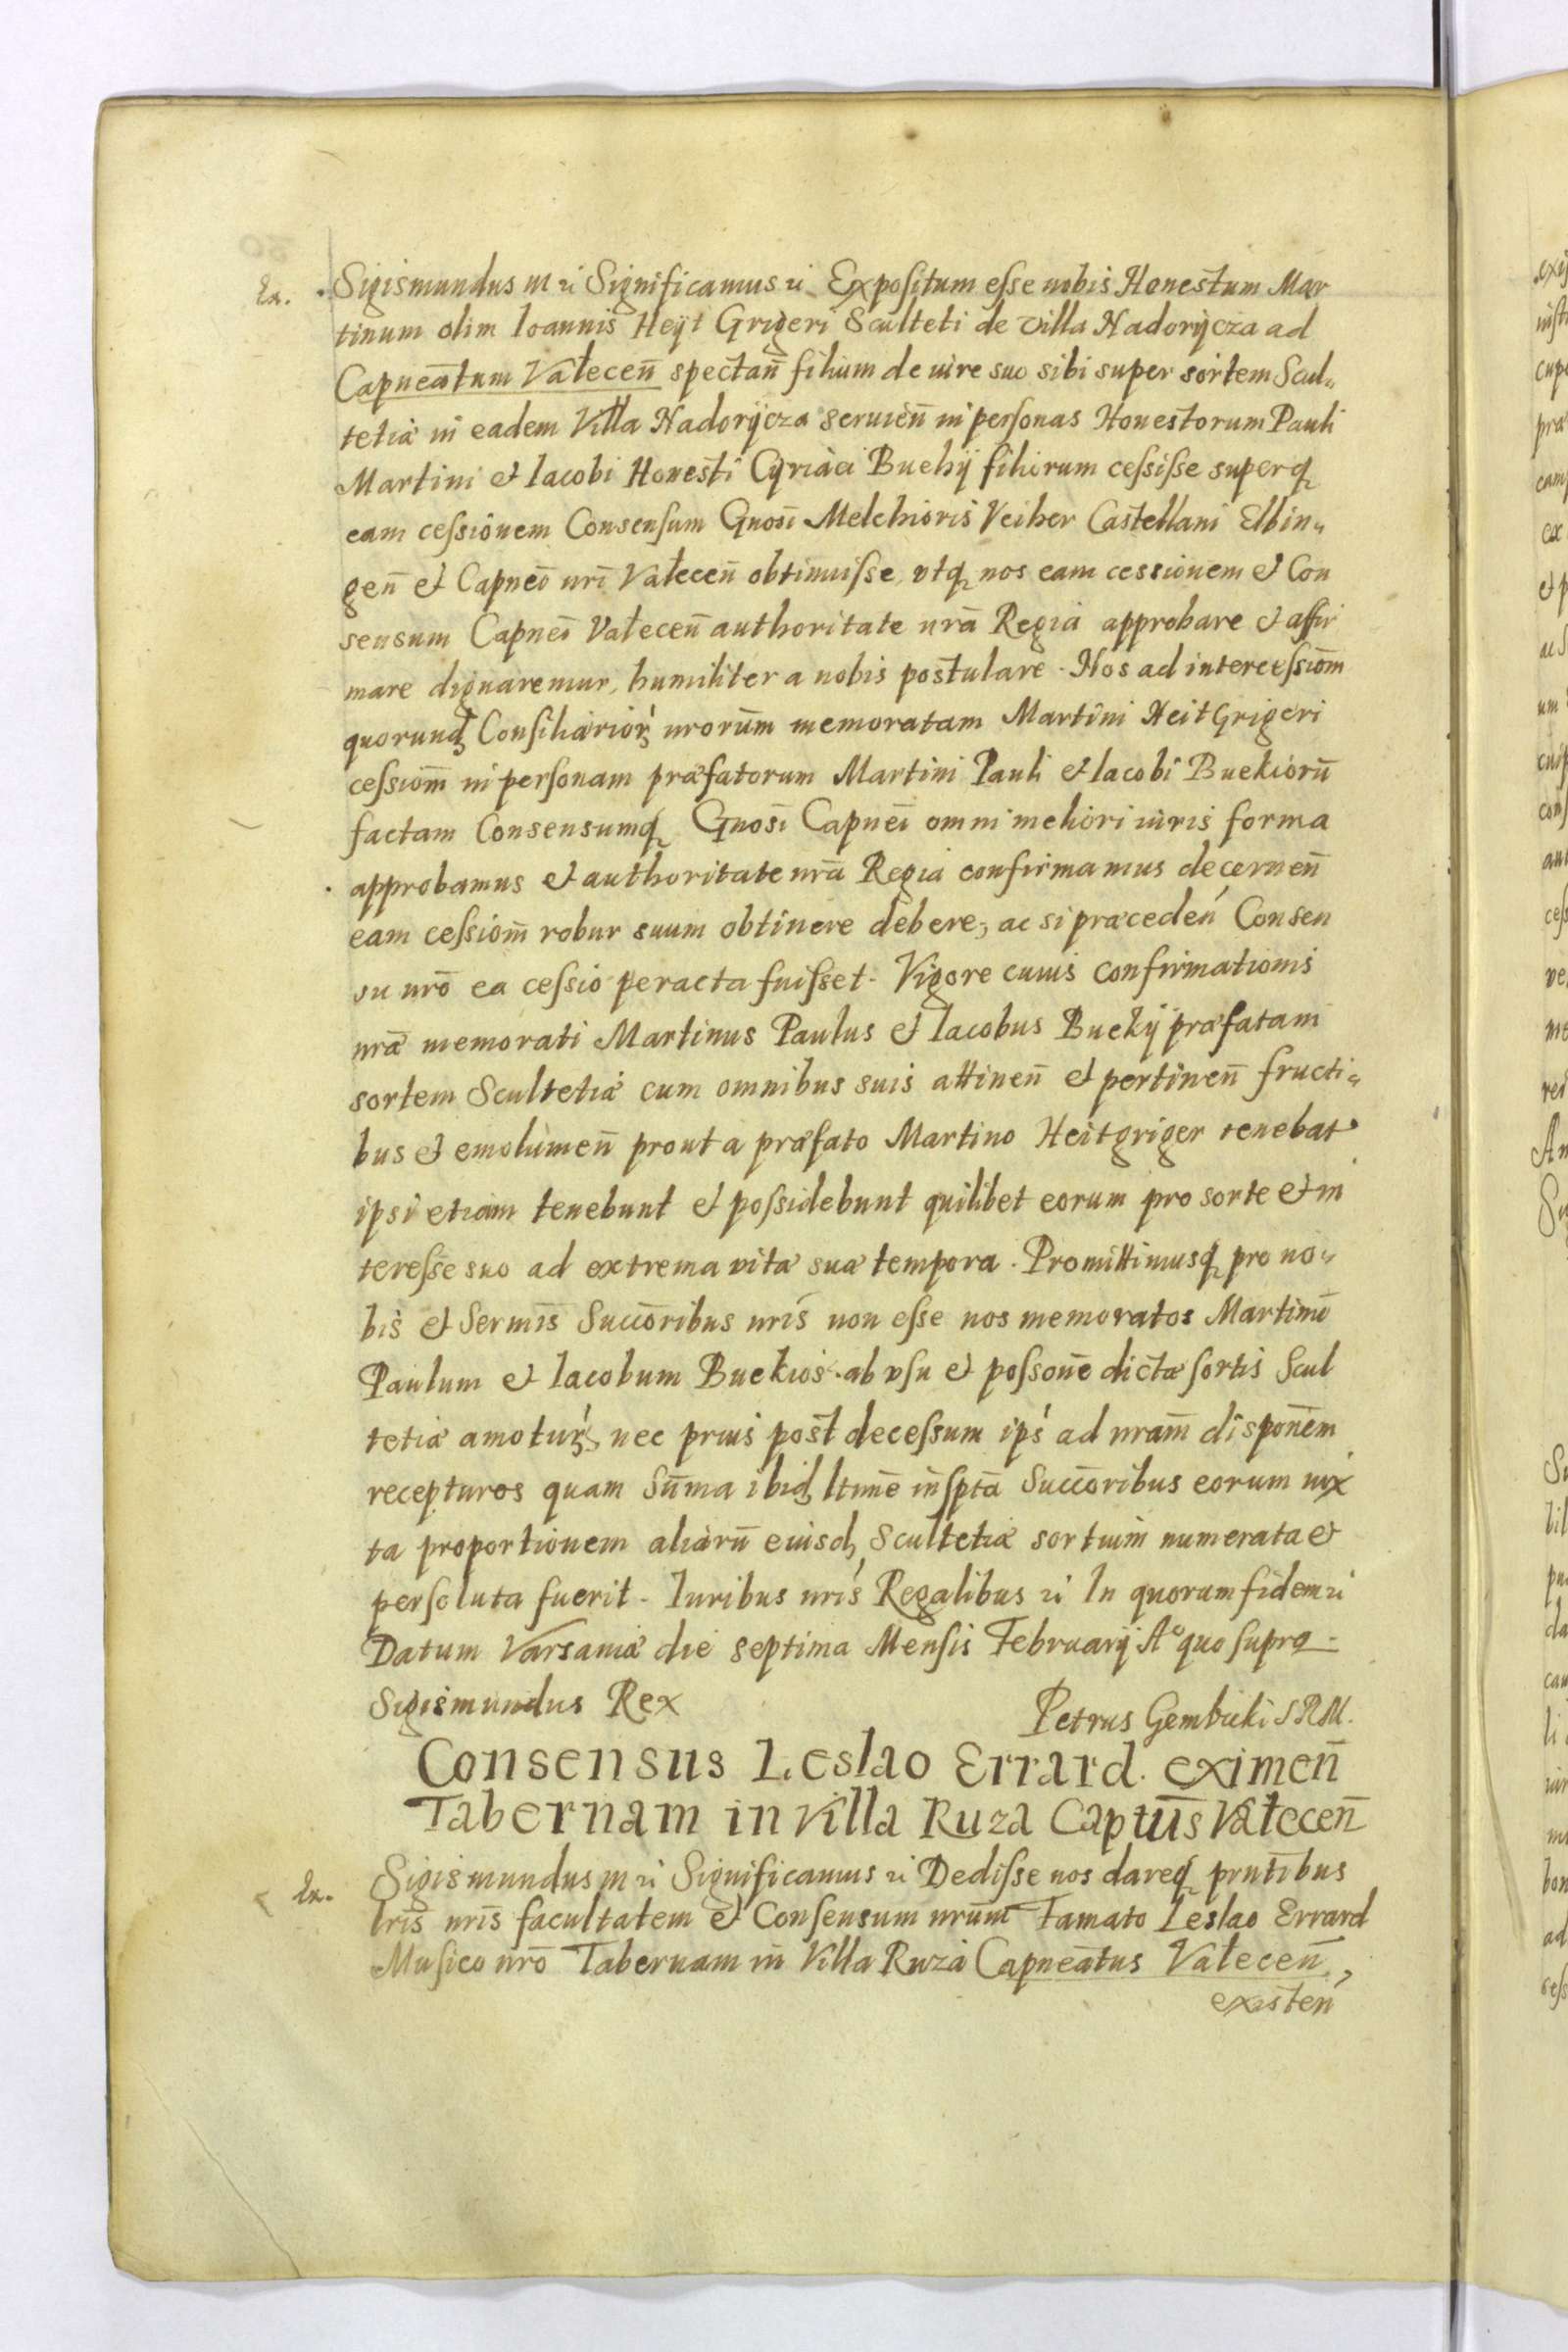 Ex. Sigismundus III ꝛc Significamus ꝛc Expositum esse nobis Honestum Mar
tinum olim Ioannis Heÿt Grigeri Sculteti de villa Nadorÿcza ad
Capneatum Vałecen̄ spectan̄ filium de iure suo sibi super sortem Scul„
tetiæ in eadem Villa Nadorÿcza seruien̄ in personas Honestorum Pauli
Martini et Iacobi Honesti Cÿriaci Buekÿ filiorum cessisse superq̨
eam cessionem Consensum Gnosi Melchioris Veiher Castellani Elbin„
gen̄ et Capnei nr̄i Vałecen̄ obtinuisse, vtq̨ nos eam cessionem et Con
sensum Capnei Vałecen̄ authoritate nr̄a Regia approbare et affir
mare dignaremur, humiliter a nobis postulare. Nos ad intercessiom̄
quorund Consiliarior nrorum memoratam Martini Heit Grigeri
cessiom̄ in personam præfatorum Martini Pauli et Iacobi Buekiorū
factam Consensumq̨ Gnosi Capnei omni meliori iuris forma
approbamus et authoritate nr̄a Regia confirmamus decernen̄
eam cessiom̄ robur suum obtinere debere, ac si præceden Consen
su nrō ea cessio peracta fuisset. Vigore cuius confirmationis
nræ memorati Martinus Paulus et Iacobus Buekÿ præfatam
sortem Scultetiæ cum omnibus suis attinen̄ et pertinen̄ fructi„
bus et emolumen̄ prout a præfato Martino Heitgriger tenebat
ipsi etiam tenebunt et possidebunt quilibet eorum pro sorte et in
teresse suo ad extrema vitæ suæ tempora. Promittimusq̨ pro no„
bis et Sermis Succoribus nris non esse nos memoratos Martinū
Paulum et Iacobum Buekios ab vsu et possone dictæ sortis Scul
tetiæ amotur, nec prius post decessum ips ad nram̄ disponem
recepturos quam Sum̄a ibid ltime inspta Succoribus eorum iux
ta proportionem aliarū eiusd Scultetiæ sortium numerata et
persoluta fuerit. Iuribus nris Regalibus ꝛc In quorum fidem ꝛc
Datum Varsauiæ die septima Mensis Februarÿ Aº quo supra.
Sigismundus Rex
Petrus Gembicki S R M.
Consensus Leslao Errard. eximen̄
Tabernam in Villa Ruza Captus Vałecen̄
Ex. Sigismundus III ꝛc Significamus ꝛc Dedisse nos dareq̨ pnt̄ibus
lris nris facultatem et Consensum nrum Famato Leslao Errard
Musico nrō Tabernam in Villa Ruza Capneatus Vałecen̄,
existen